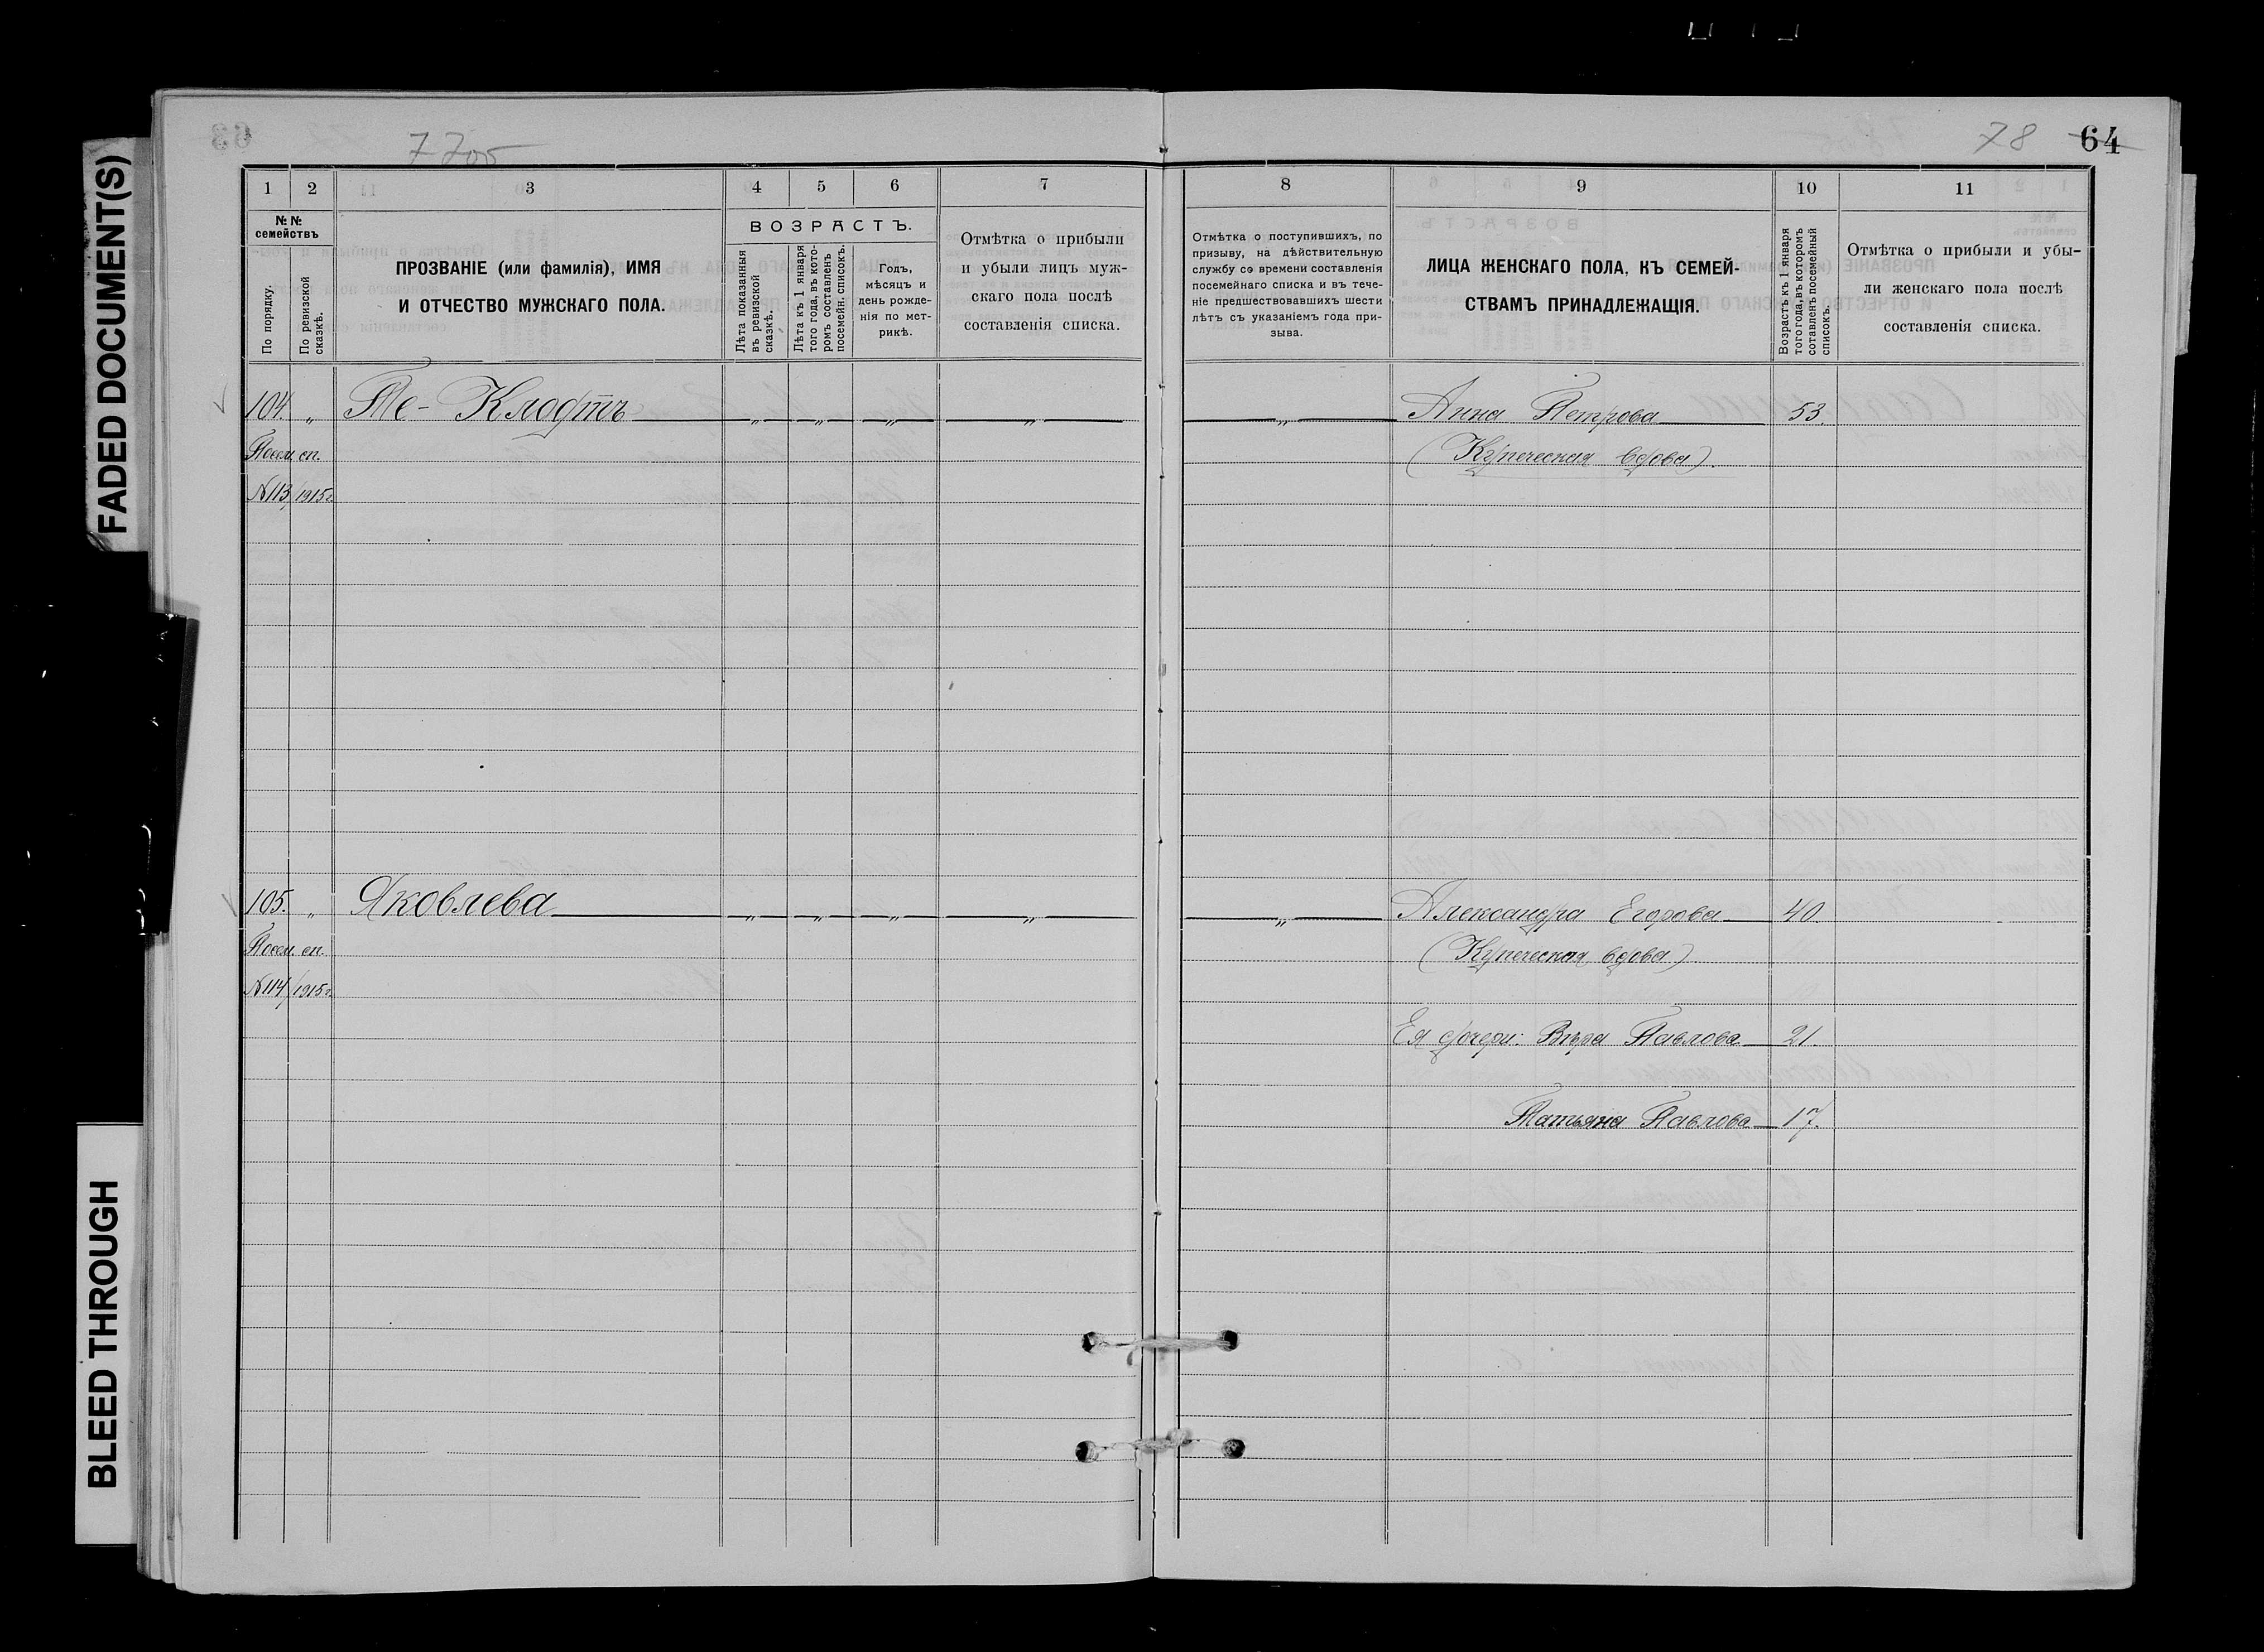 FADED DOCUMENT(S)
BLEED THROUGH
77об
78 64
1 2 3 4 5 6 7
№ № семействъ
По порядку.
По ревизской сказкѣ.
ПРОЗВАНІЕ (или фамилія), ИМЯ
И ОТЧЕСТВО МУЖСКАГО ПОЛА.
ВОЗРАСТЪ.
Лѣта показанныя въ ревизской сказкѣ.
Лѣта къ 1 января того года, въ кото-ромъ составленъ посемейн. списокъ.
Годъ,
мѣсяцъ и
день рожде-
нія по мет-
рикѣ.
Отмѣтка о прибыли
и убыли лицъ муж-
скаго пола послѣ
составленія списка.
8 9 10 11
Отмѣтка о поступившихъ, по
призыву, на дѣйствительную
службу со времени составленія
посемейнаго списка и въ тече-
ніе предшествовавшихъ шести
лѣтъ съ указаніемъ года при-
зыва.
ЛИЦА ЖЕНСКАГО ПОЛА, КЪ СЕМЕЙ-
СТВАМЪ ПРИНАДЛЕЖАЩІЯ.
Возрастъ къ 1 января
того года, въ которомъ
соста­вленъ посемейный
списокъ.
Отмѣтка о прибыли и убы-
ли женскаго пола послѣ
составленія списка.
104. „ Те-Клофтъ „ „ „ „ „ Анна Петрова 53.
Посем. сп. (Купеческая вдова).
№113/1915г.
105. „ Яковлева „ „ „ „ „ Александра Егорова 40.
Посем. сп. (Купеческая вдова)
№114/1915г.
Ея дочери: Вѣра Павлова 21.
Татьяна Павлова 17.